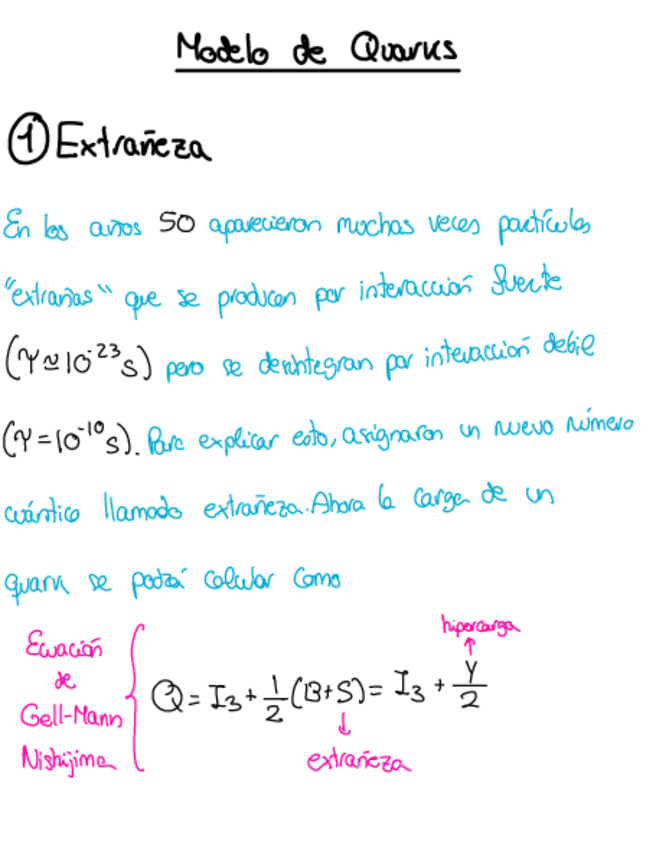 Modelo de Quarks
① Extrañeza
En los años 50 aparecieron muchas veces partículas
"extrañas" que se producen por interacción fuerte
(τ ≃ 10⁻²³ s) pero se desintegran por interacción débil
(τ = 10⁻¹⁰ s). Para explicar esto, asignaron un nuevo número
cuántico llamado extrañeza. Ahora la carga de un
quark se podrá calcular como
hipercarga
Ecuación
de
Gell-Mann
Nishijima
Q = I₃ + 1/2 (B+S) = I₃ + Y/2
extrañeza